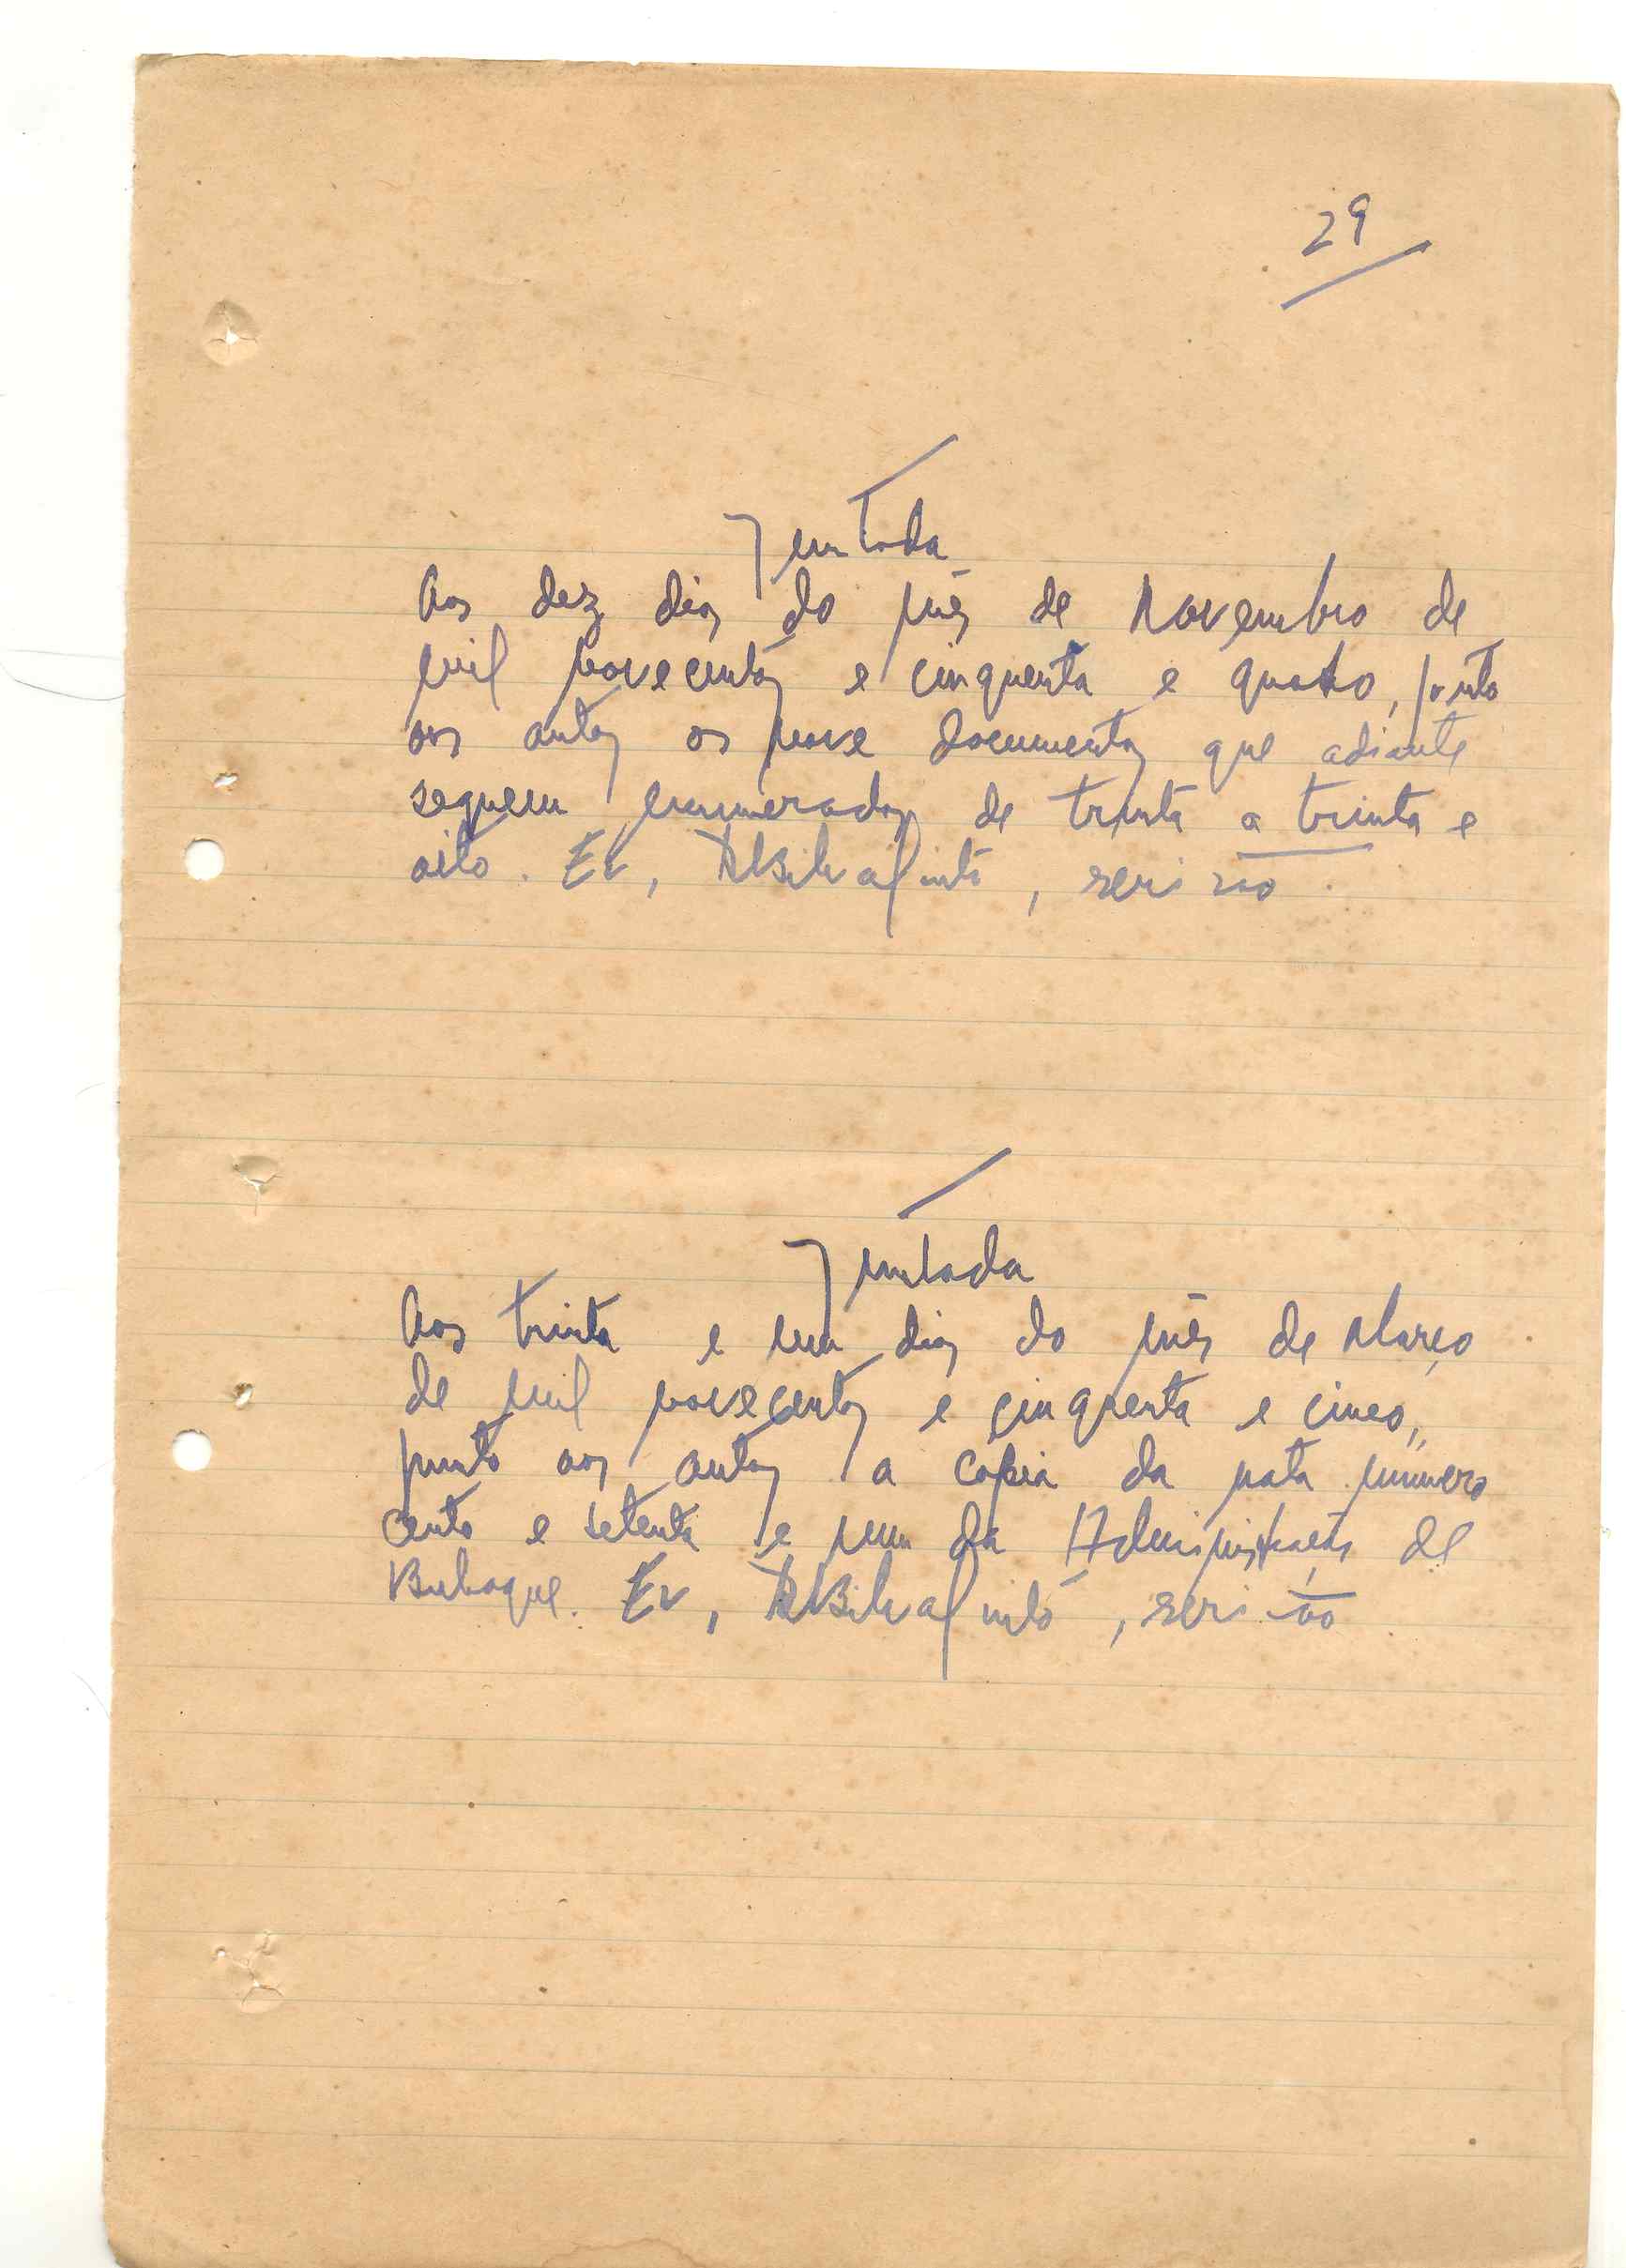 29
Juntada
Aos dez dias do mês de Novembro de
mil novecentos e cinquenta e quatro, junto
aos autos os nove documentos que adiante
seguem enumerados de trinta a trinta e
oito. Eu, , escrivão.
Juntada
Aos trinta e um dias do mês de Março
de mil novecentos e cinquenta e cinco,
junto aos autos a copia da nota numero
cento e setenta e um da Administração de
Bubaque. Eu, , escrivão